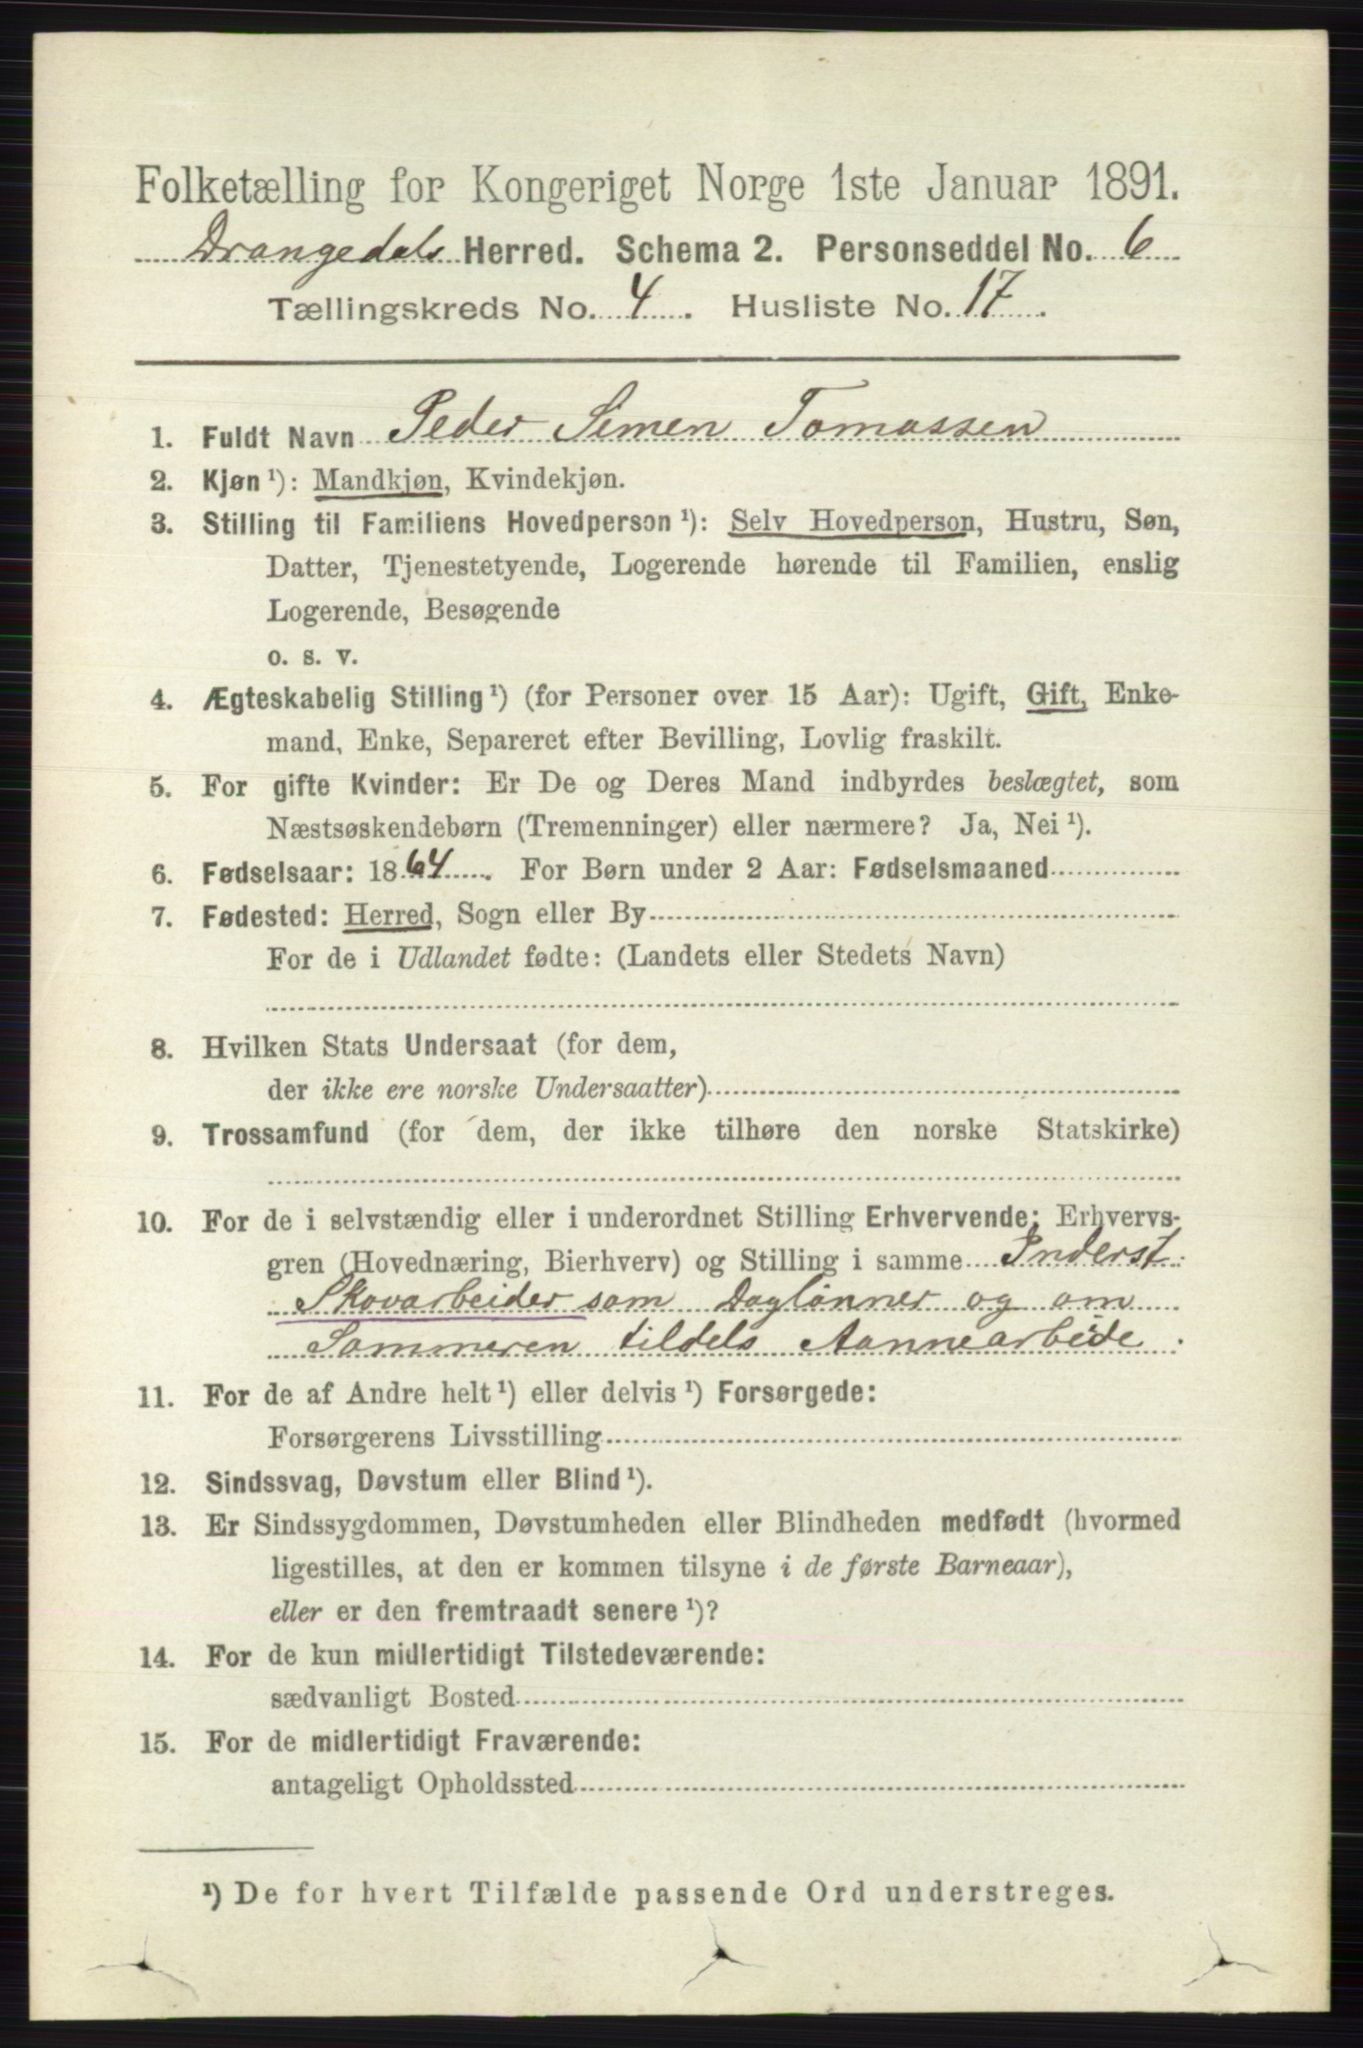 Folketælling for Kongeriget Norge 1ste Januar 1891.
Drangedals Herred. Schema 2. Personseddel No. 6
Tællingskreds No. 4. Husliste No. 17.
1. Fuldt Navn Peder Simen Tomassen
2. Kjøn ¹): Mandkjøn, Kvindekjøn.
3. Stilling til Familiens Hovedperson ¹): Selv Hovedperson, Hustru, Søn,
Datter, Tjenestetyende, Logerende hørende til Familien, enslig
Logerende, Besøgende
o. s. v.
4. Ægteskabelig Stilling ¹) (for Personer over 15 Aar): Ugift, Gift, Enke-
mand, Enke, Separeret efter Bevilling, Lovlig fraskilt.
5. For gifte Kvinder: Er De og Deres Mand indbyrdes beslægtet, som
Næstsøskendebørn (Tremenninger) eller nærmere? Ja, Nei ¹).
6. Fødselsaar: 1864. For Børn under 2 Aar: Fødselsmaaned
7. Fødested: Herred, Sogn eller By
For de i Udlandet fødte: (Landets eller Stedets Navn)
8. Hvilken Stats Undersaat (for dem,
der ikke ere norske Undersaatter)
9. Trossamfund (for dem, der ikke tilhøre den norske Statskirke)
10. For de i selvstændig eller i underordnet Stilling Erhvervende: Erhvervs-
gren (Hovednæring, Bierhverv) og Stilling i samme Inderst.
Skovarbeider som Daglønner og om
Sommeren tildels Aannearbeide.
11. For de af Andre helt ¹) eller delvis ¹) Forsørgede:
Forsørgerens Livsstilling
12. Sindssvag, Døvstum eller Blind ¹).
13. Er Sindssygdommen, Døvstumheden eller Blindheden medfødt (hvormed
ligestilles, at den er kommen tilsyne i de første Barneaar),
eller er den fremtraadt senere ¹)?
14. For de kun midlertidigt Tilstedeværende:
sædvanligt Bosted
15. For de midlertidigt Fraværende:
antageligt Opholdssted
¹) De for hvert Tilfælde passende Ord understreges.